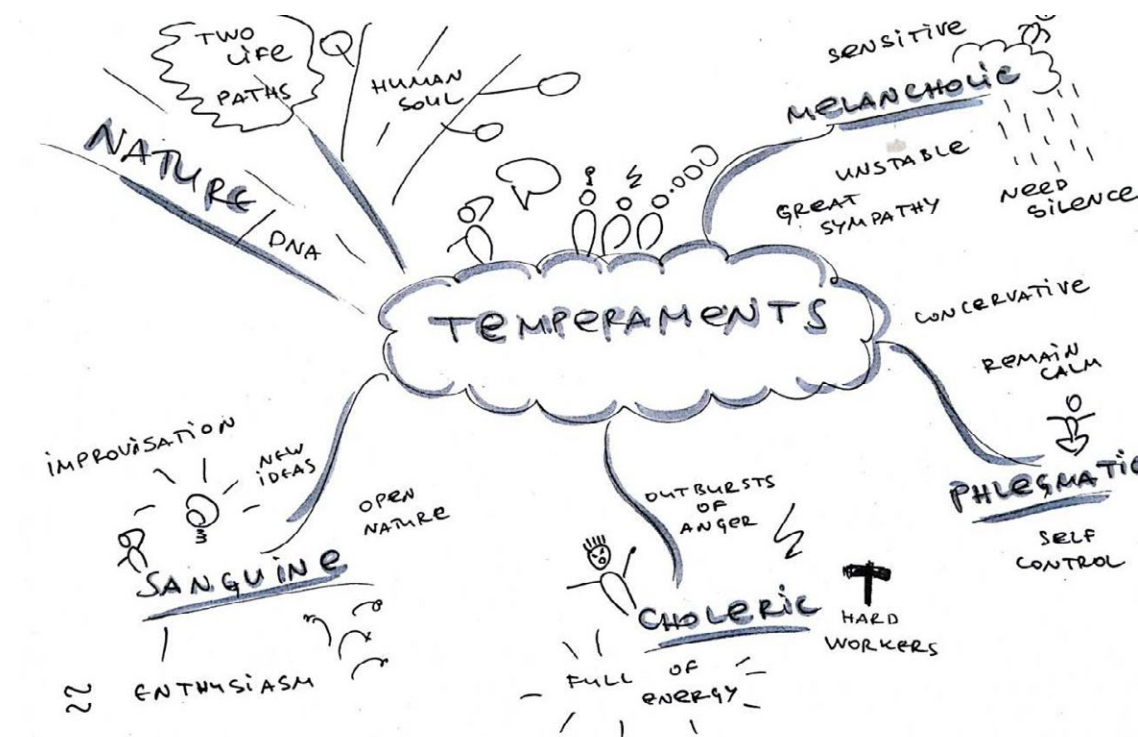 TWO
LIFE
PATHS
HUMAN
SOUL
NATURE
DNA
SENSITIVE
MELANCHOLIC
UNSTABLE
GREAT
SYMPATHY
NEED
SILENCE
TEMPERAMENTS
CONCERVATIVE
REMAIN
CALM
PHLEGMATIC
SELF
CONTROL
IMPROVISATION
NEW
IDEAS
OPEN
NATURE
SANGUINE
ENTHYSIASM
OUTBURSTS
OF
ANGER
CHOLERIC
HARD
WORKERS
FULL OF
ENERGY